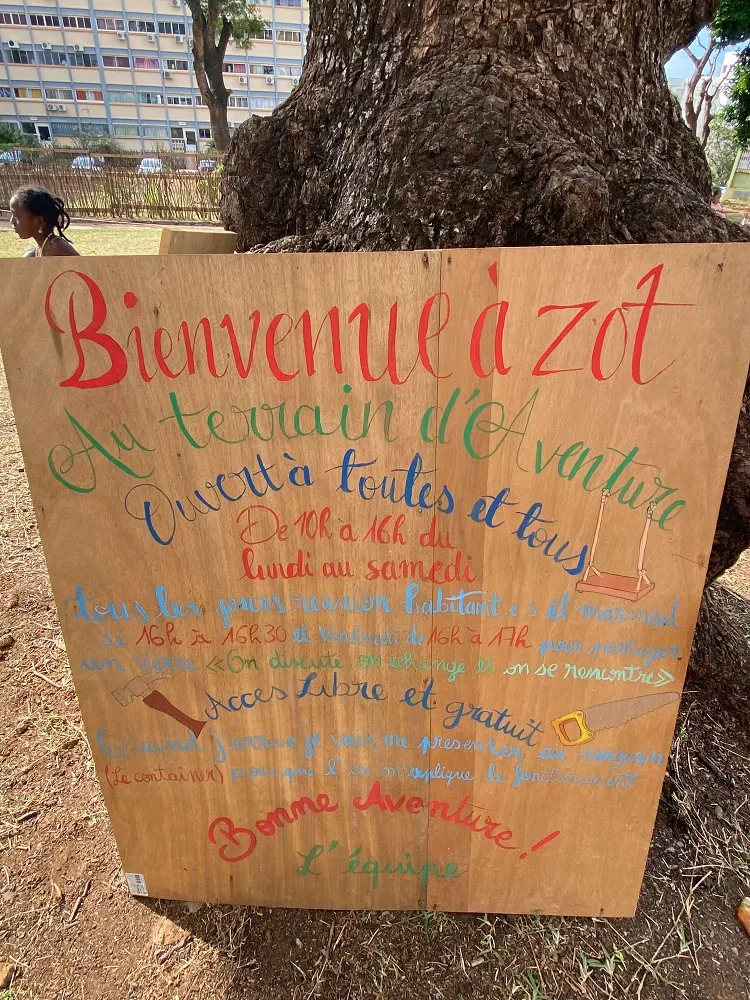 Bienvenue à zot
Au terrain d'Aventure
Ouvert à toutes et tous
De 10h à 16h du
lundi au samedi
tous les jours reunion habitant.e.s et marmail
de 16h à 16h30 et Vendredi de 16h à 17h pour partager
un verre «On discute on échange et on se rencontre»
Acces Libre et gratuit
Quand j'arrive je vais me presenter au magasin
(Le container) pour que l'on m'explique le fonctionnement
Bonne Aventure!
L'équipe